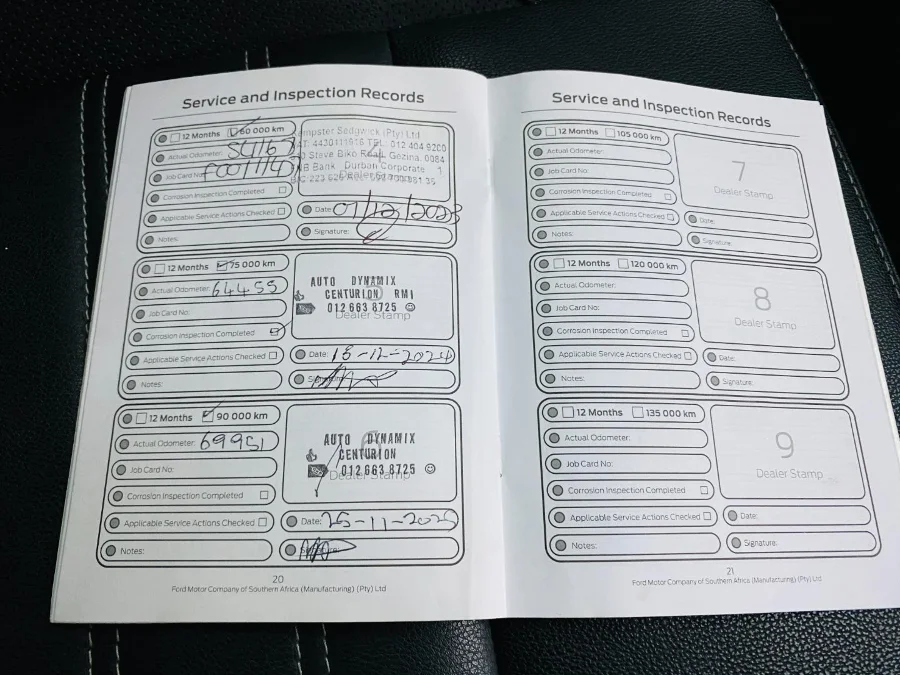 Service and Inspection Records
12 Months 60 000 km
Actual Odometer: 54167
Job Card No:
Corrosion Inspection Completed
Applicable Service Actions Checked
Notes:
Sedgwick (Pty) Ltd
4430111616 TEL: 012 404 9200
Steve Biko Road, Gezina, 0084
Bank Durban Corporate
4
Dealer Stamp
Date: 01/12/2023
Signature:
12 Months 75 000 km
Actual Odometer: 64455
Job Card No:
Corrosion Inspection Completed
Applicable Service Actions Checked
Notes:
AUTO DYNAMIX
CENTURION RMI
012 663 8725
Dealer Stamp
Date: 18-12-2024
Signature:
12 Months 90 000 km
Actual Odometer: 69951
Job Card No:
Corrosion Inspection Completed
Applicable Service Actions Checked
Notes:
AUTO DYNAMIX
CENTURION
012 663 8725
Dealer Stamp
Date: 25-11-2025
Signature:
20
Ford Motor Company of Southern Africa (Manufacturing) (Pty) Ltd
Service and Inspection Records
12 Months 105 000 km
Actual Odometer:
Job Card No:
Corrosion Inspection Completed
Applicable Service Actions Checked
Notes:
7
Dealer Stamp
Date:
Signature:
12 Months 120 000 km
Actual Odometer:
Job Card No:
Corrosion Inspection Completed
Applicable Service Actions Checked
Notes:
8
Dealer Stamp
Date:
Signature:
12 Months 135 000 km
Actual Odometer:
Job Card No:
Corrosion Inspection Completed
Applicable Service Actions Checked
Notes:
9
Dealer Stamp
Date:
Signature:
21
Ford Motor Company of Southern Africa (Manufacturing) (Pty) Ltd